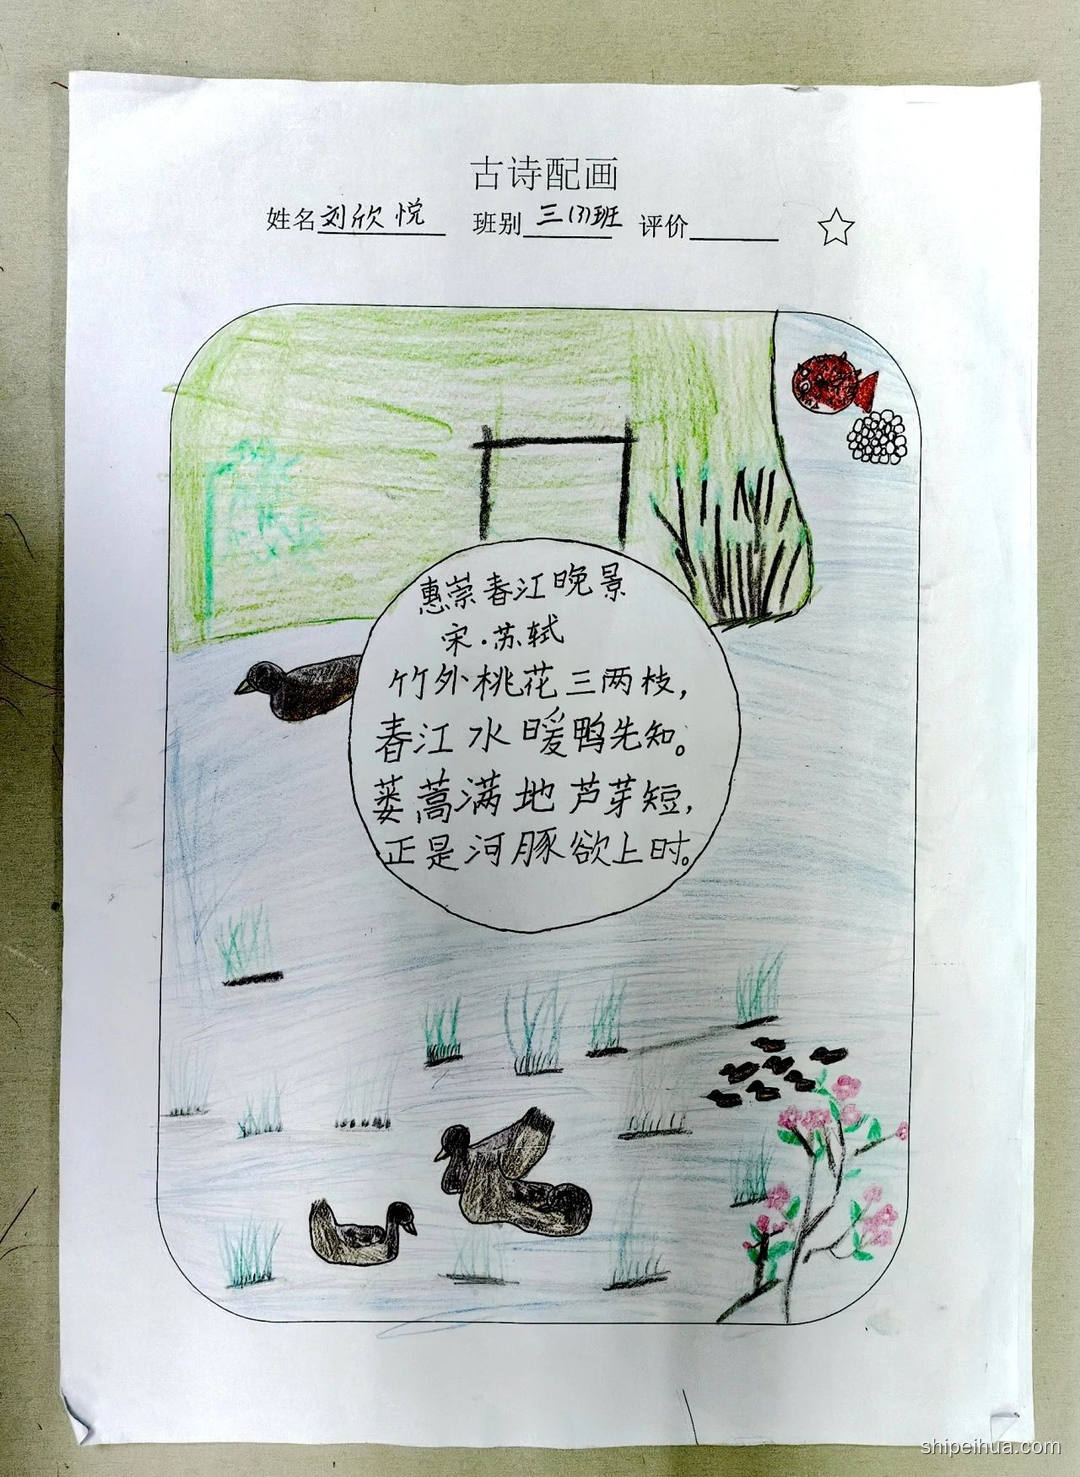 古诗配画
姓名刘欣悦 班别三(3)班 评价
惠崇春江晚景
宋·苏轼
竹外桃花三两枝，
春江水暖鸭先知。
蒌蒿满地芦芽短，
正是河豚欲上时。
shipeihua.com